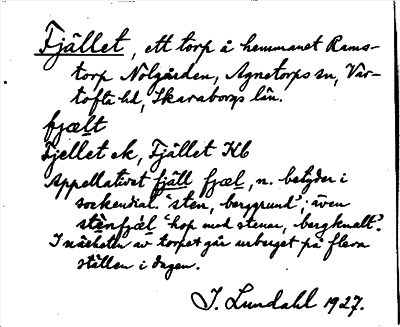 Fjället, ett torp å hemmanet Rams-
torp Nolgården, Agnetorps sn, Var-
tofta hd, Skaraborgs län.
fjælt
Fjellet ek, Fjället Kb
Appellativet fjäll fjæl, n. betyder i
sockendial. 'sten, berggrund'; även
stenfjæl 'hop med stenar, bergknalt'.
I närheten av torpet går urberget på flera
ställen i dagen.
I. Lundahl 1927.